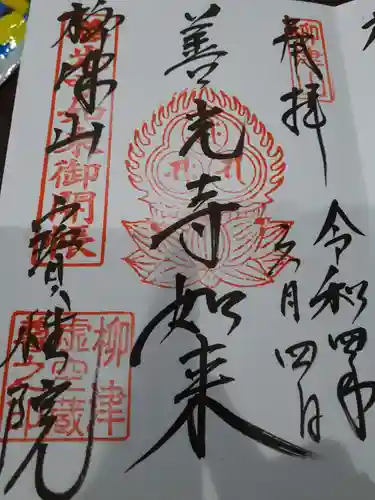 奉拝
令和四年
六月四日
善光寺如来
柳津山 寳性院
如来御開帳
柳津
虚空蔵